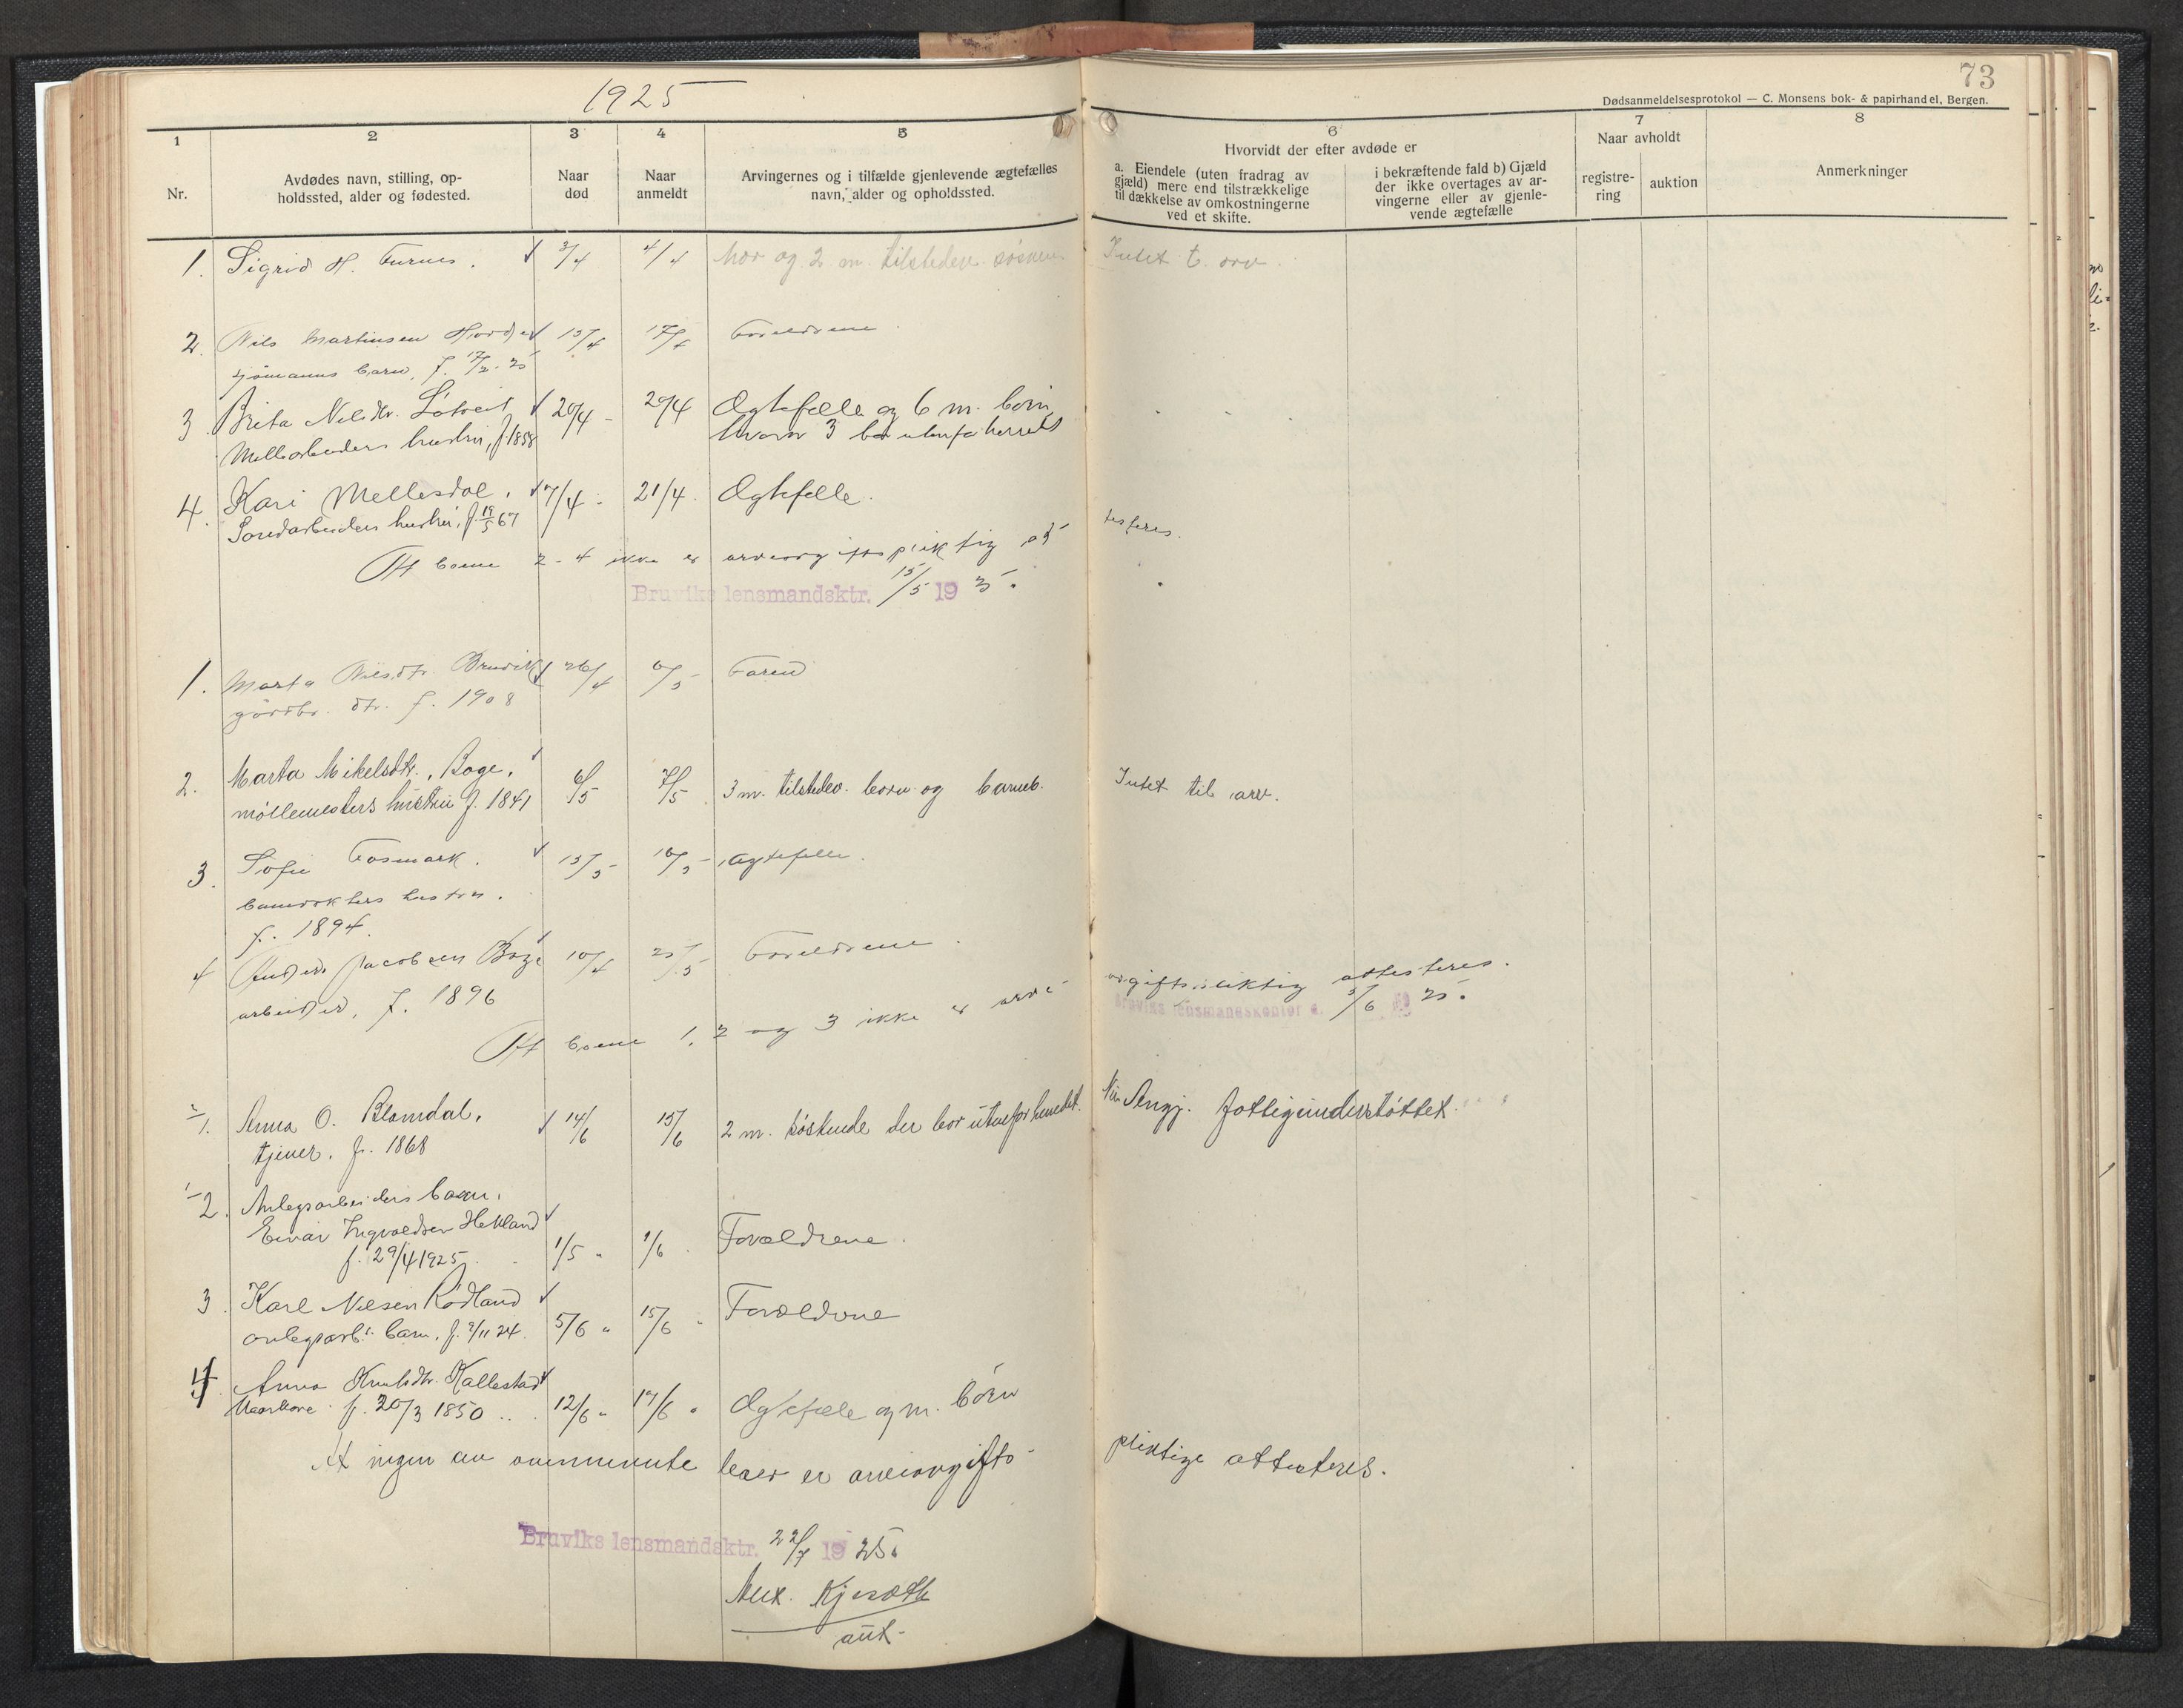 1925
73
Dødsanmeldelsesprotokol — C. Monsens bok- & papirhandel, Bergen.
1
Nr.
2
Avdødes navn, stilling, op-
holdssted, alder og fødested.
3
Naar
død
4
Naar
anmeldt
5
Arvingernes og i tilfælde gjenlevende ægtefælles
navn, alder og opholdssted.
6
Hvorvidt der efter avdøde er
a. Eiendele (uten fradrag av
gjæld) mere end tilstrækkelige
til dækkelse av omkostningerne
ved et skifte.
i bekræftende fald b) Gjæld
der ikke overtages av ar-
vingerne eller av gjenle-
vende ægtefælle
7
Naar avholdt
registre-
ring
auktion
8
Anmerkninger
1. Sigrid H. Furnes. 3/4 4/4 mor og 2 m. tilstedev. søsken Intet t. arv.
2. Nils Martinsen 13/4 17/4 Forældrene
sjømanns barn, f. 17/2-25
3 Brita Nilsdtr. 20/4 - 29/4 Ægtefælle og 6 m. børn
Møllearbeiders hustru, f. 1858 hvorav 3 bor utenfor herredet
4. Kari Mellesdal. 17/4 - 21/4. Ægtefelle.
hustru, f. 19/5 67
At boene 2-4 ikke er arveavgiftspliktig at- testeres.
Bruviks lensmandsktr. 15/5 19 25.
1. Marta Nilsdtr. Bruvik 26/4 6/5 Faren
gårdbr. dtr. f. 1908
2. Marta Mikelsdtr. Boge. 6/5 7/5 3 m. tilstedev. born og barneb. Intet til arv.
møllemesters hustru f. 1841
3. Sofie Fosmark. 13/5 - 16/5 - Ægtefelle.
hustru.
f. 1894.
4 Anders Jacobsen Boge 10/4 25/5 Forældrene.
arbeider, f. 1896
At boene 1, 2 og 3 ikke er arve- avgiftspliktig attesteres.
Bruviks lensmandskontor d. 5/6 25.
1. Anna O. Blomdal. 14/6 15/6 2 m. søskende der bor utenfor herredet. Nei Angj. fattigunderstøttet.
tjener. f. 1868
2. Anlegsarbeiders barn.
Einar Ingvaldsen Hekland 1/5 " 1/6 Forældrene.
f. 29/4 1925.
3. Karl Nilsen Rødland 5/6 " 15/6 " Forældrene
anlegsarb. barn, f. 2/11 24.
4. Anna Knutsdtr. Kallestad 12/6 " 19/6 " Ægtefælle og m. børn
f. 20/3 1850
At ingen av ovennevnte boer er arveavgifts- pliktige attesteres.
Bruviks lensmandsktr. 22/7 19 25.